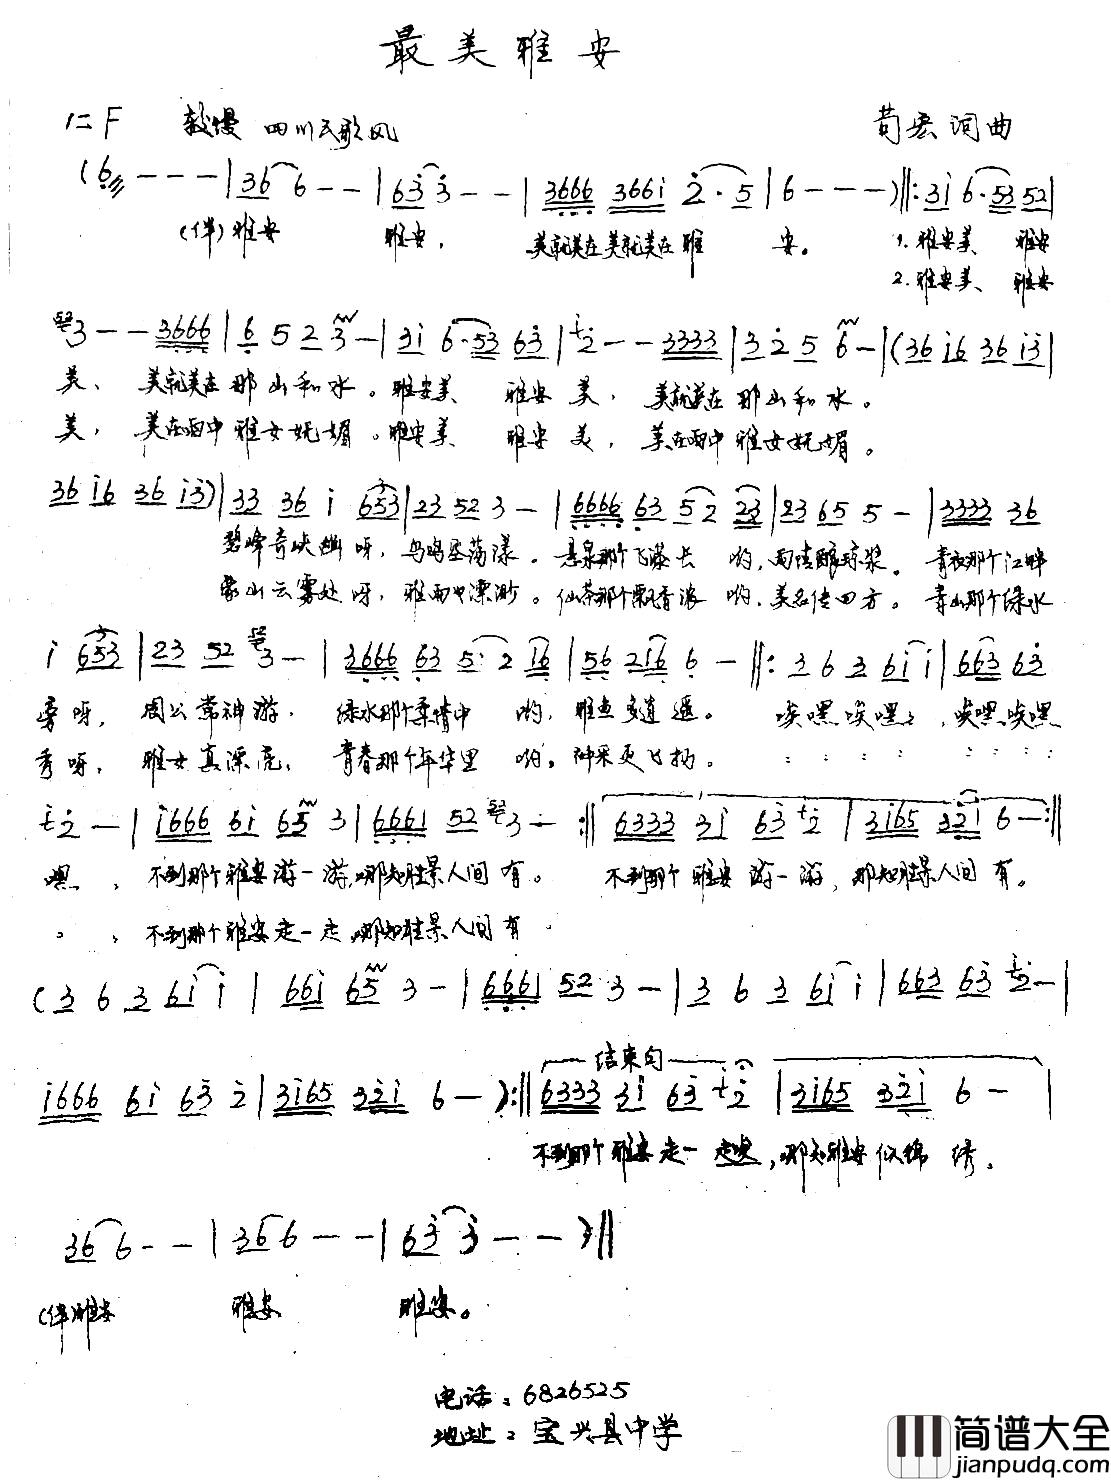 最美雅安
1=F 较慢 四川民歌风 苟宏词曲
(6 - - - | 36 6 - - | 63 3 - - | 3666 366i 2·5 | 6 - - - ) ‖: 3i 6·53 52 |
(伴)雅安 雅安, 美就美在美就美在雅安。 1.雅安美、雅安
2.雅安美、雅安
3 - - 3666 | 6 5 2 3 - | 3i 6·53 63 | 2 - - 3333 | 3 2 5 6 - | (36 i6 36 i3 |
美、 美就美在那山和水。雅安美 雅安美, 美就美在那山和水。
美, 美在雨中雅女妩媚。雅安美 雅安美, 美在雨中雅女妩媚。
36 i6 36 i3) | 33 36 i 653 | 23 52 3 - | 6666 63 5 2 23 | 23 65 5 - | 3333 36
碧峰奇峡幽呀, 鸟鸣荡漾。悬泉那个飞瀑长 哟, 雨清醇琼浆。青衣那个江畔
蒙山云雾处呀, 雅雨中漂渺。仙茶那个飘香浓 哟, 美名传四方。青山那个绿水
i 653 | 23 52 3 - | 3666 63 5· 2 16 | 56 216 6 - ‖: 3 6 3 6i i | 663 63
旁呀, 周公常神游, 绿水那个柔情中 哟, 雅鱼多逍遥。 唉嘿唉嘿, 唉嘿唉嘿
秀呀, 雅女真漂亮, 青春那个年华里 哟, 神采更飞扬。
2 - | i666 6i 65 3 | 6661 52 3 - :‖ 6333 3i 63 2 | 3i65 32i 6 - :‖
嘿, 不到那个雅安游一游, 哪知胜景人间有。 不到那个雅安游一游, 那知胜景人间有。
不到那个雅安走一走, 哪知胜景人间有
(3 6 3 6i i | 66i 65 3 - | 6661 52 3 - | 3 6 3 6i i | 663 63 2 - |
结束句
i666 6i 63 2 | 3i65 32i 6 - ) :‖ 6333 3i 63 2 | 3i65 32i 6 - |
不到那个雅安走一走, 哪知雅安似锦绣。
36 6 - - | 36 6 - - | 63 3 - - ‖
(伴)雅安 雅安 雅安。
电话:6826525
地址:宝兴县中学
简谱大全
jianpudq.com